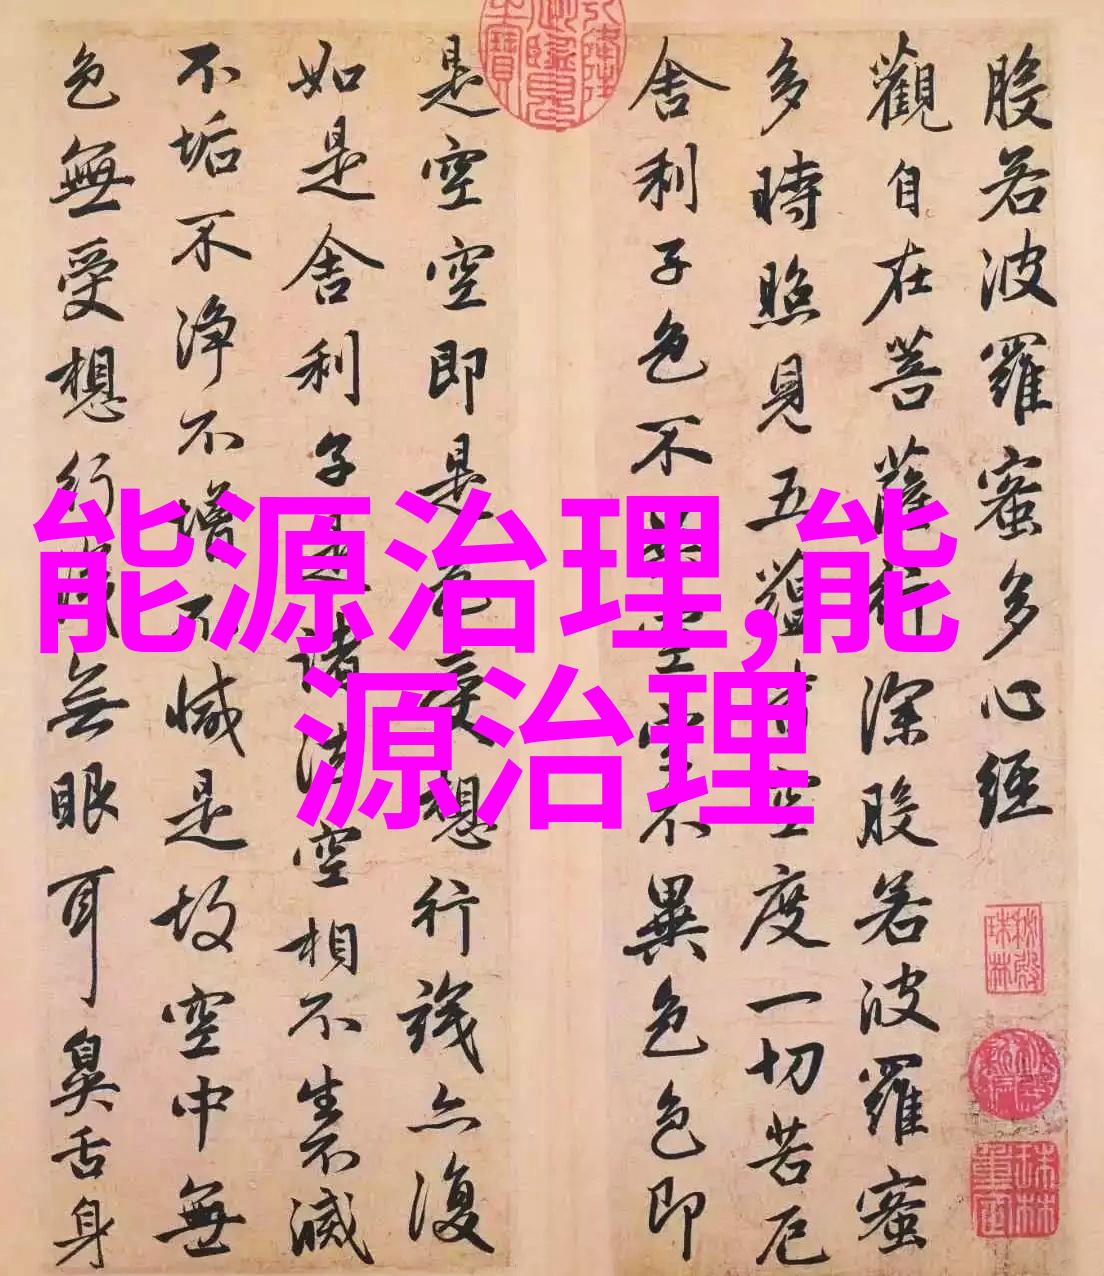 般若波羅蜜多心經
觀自在菩薩行深般若波羅蜜
多時照見五蘊皆空度一切苦厄
舍利子色不異空空不異色色即
是空空即是色受想行識亦復
如是舍利子是諸法空相不生不滅
不垢不净不增不減是故空中無
色無受想行識無眼耳鼻舌身
能源治理,能
源治理
秘殿珠林
珠林重定